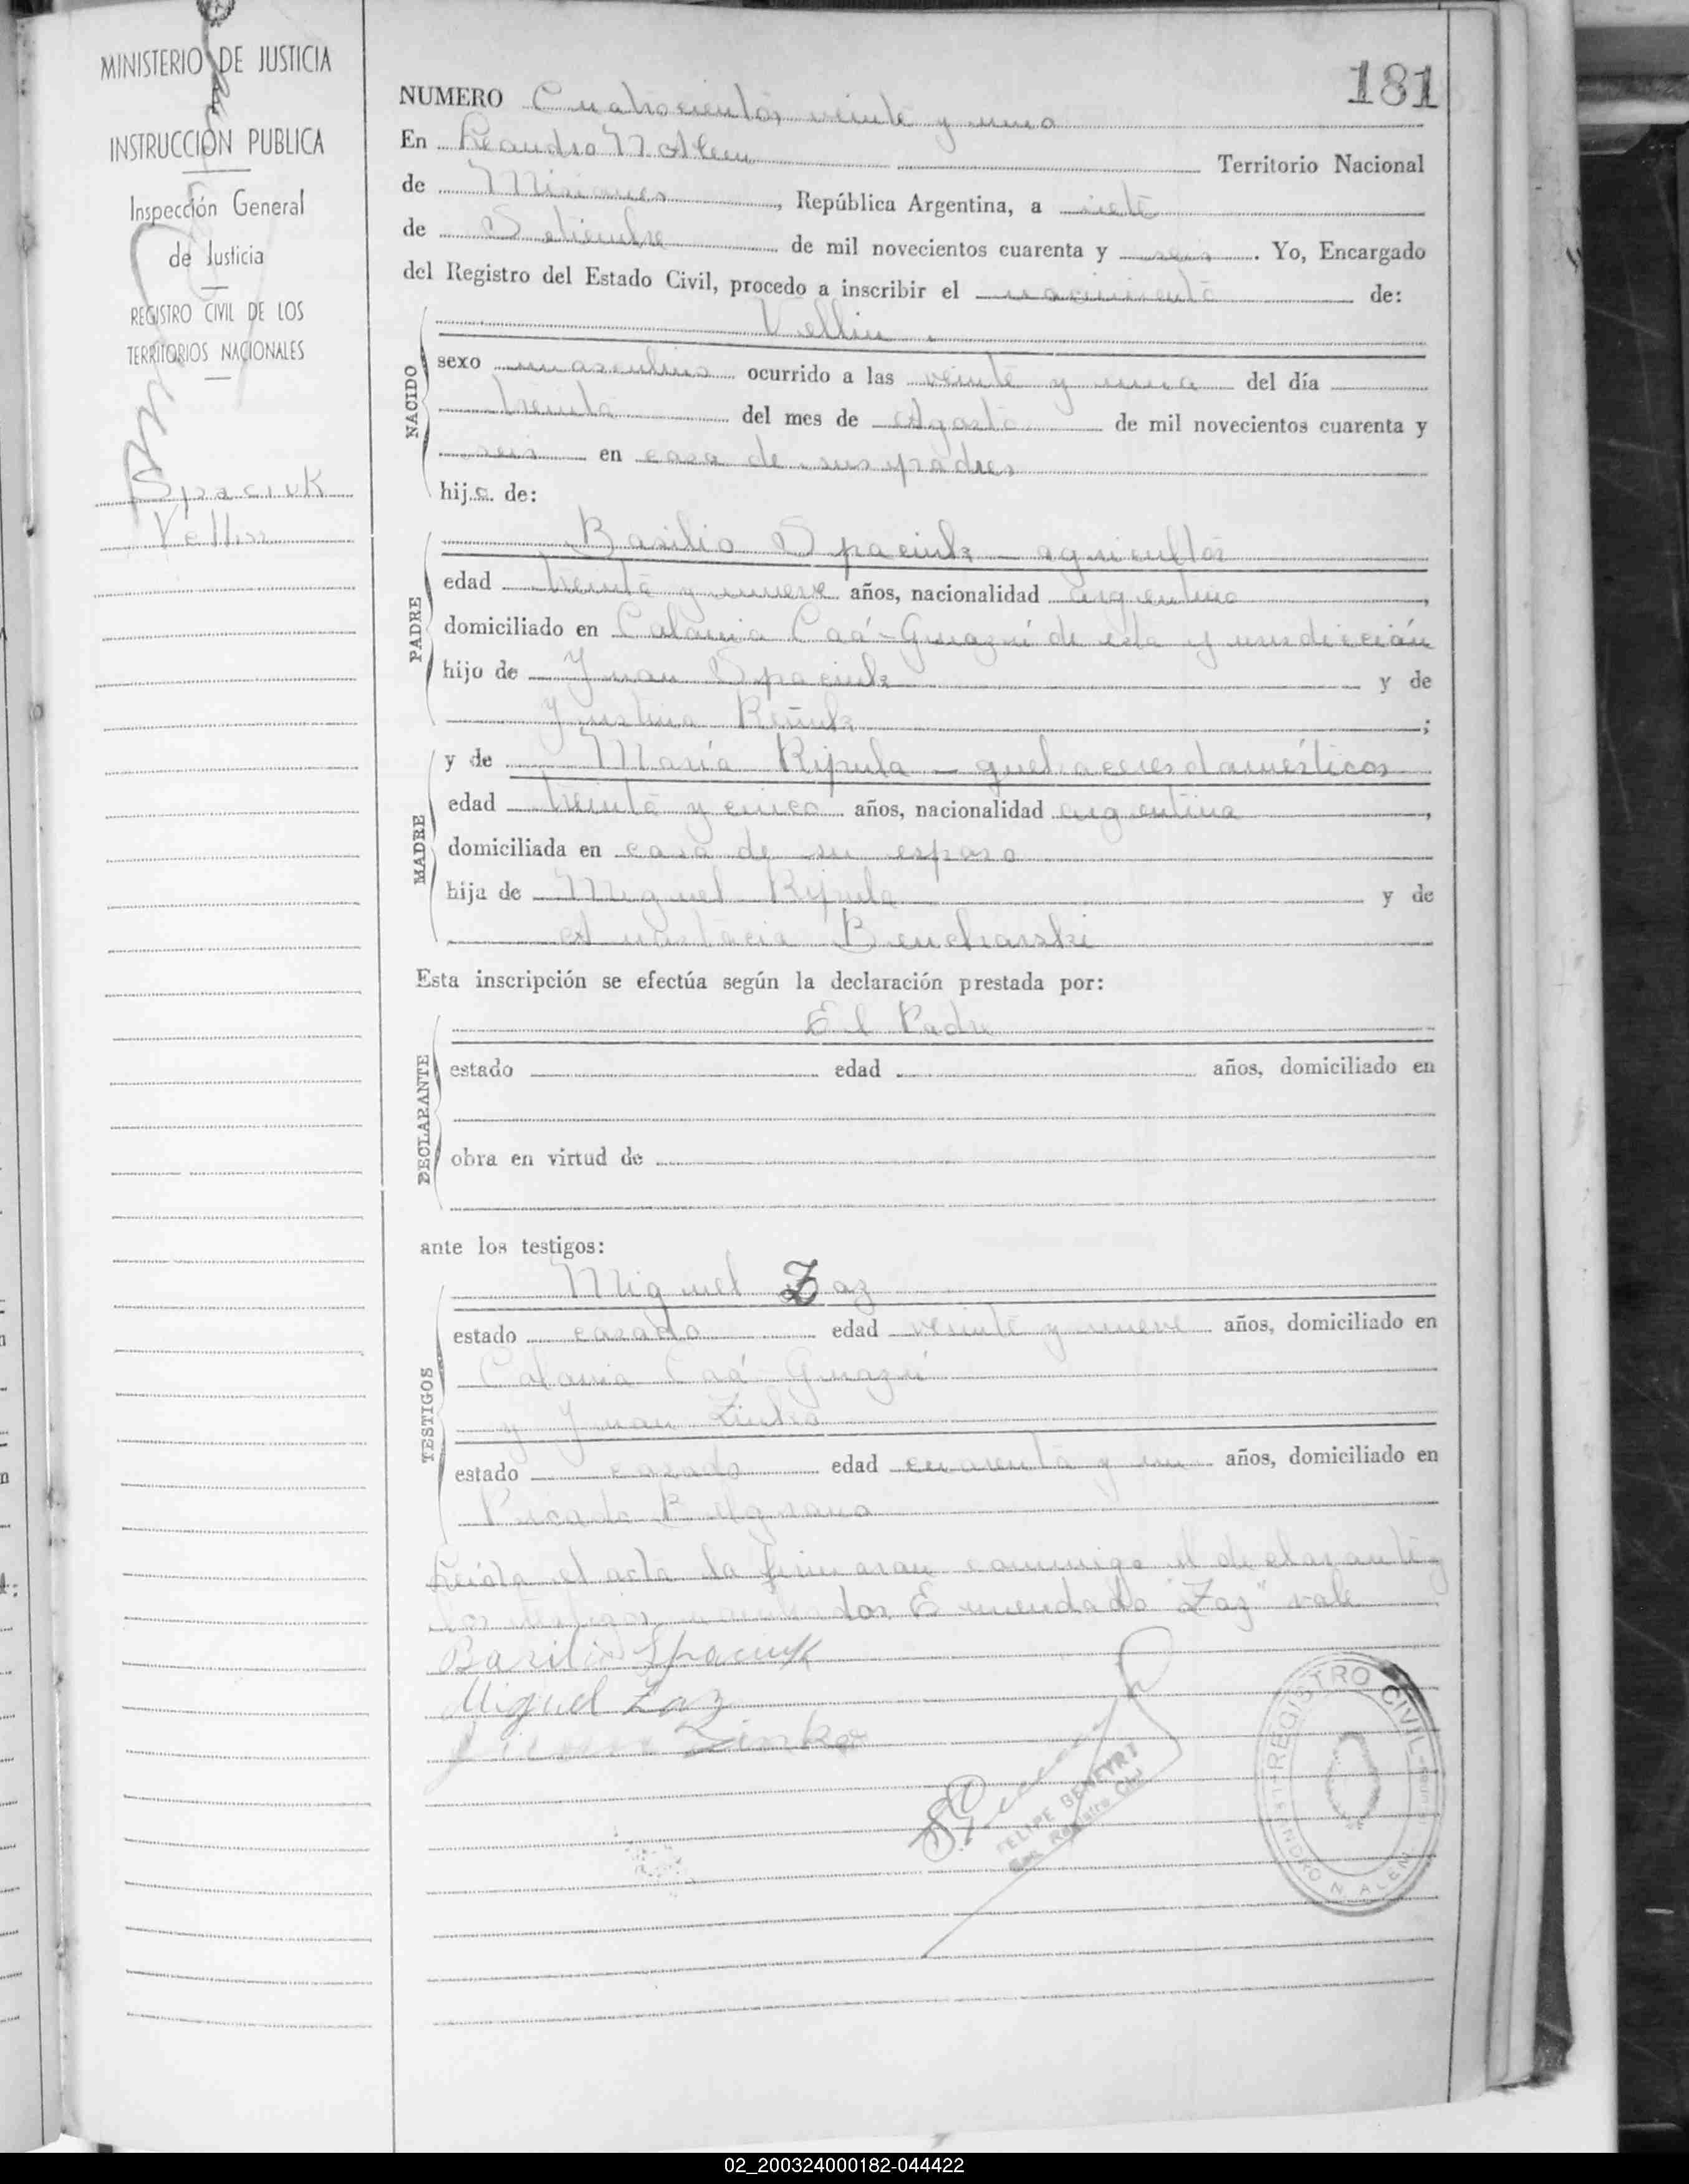 MINISTERIO DE JUSTICIA
INSTRUCCIÓN PUBLICA
Inspección General
de Justicia
REGISTRO CIVIL DE LOS
TERRITORIOS NACIONALES
Spaciuk
Vellin
181
NUMERO Cuatrocientos veinte y uno
En Leandro N. Alem Territorio Nacional
de Misiones, República Argentina, a siete
de Setiembre de mil novecientos cuarenta y seis. Yo, Encargado
del Registro del Estado Civil, procedo a inscribir el nacimiento de:
NACIDO
Vellin
sexo masculino ocurrido a las veinte y una del día
treinta del mes de Agosto de mil novecientos cuarenta y
seis en casa de sus padres
hijo de:
PADRE
Basilio Spaciuk – agricultor
edad treinta y nueve años, nacionalidad argentino,
domiciliado en Colonia Caá-Guazú de esta jurisdicción
hijo de Juan Spaciuk y de
Justina ;
MADRE
y de María Kipula – quehaceres domésticos
edad treinta y cinco años, nacionalidad argentina,
domiciliada en casa de su esposo
hija de Miguel Kipula y de
Anastacia Bencharski
Esta inscripción se efectúa según la declaración prestada por:
DECLARANTE
El Padre
estado edad años, domiciliado en
obra en virtud de
ante los testigos:
TESTIGOS
Miguel Zaz
estado casado edad veinte y nueve años, domiciliado en
Colonia Caá-Guazú
y Juan Zinko
estado casado edad cuarenta y un años, domiciliado en
Picada Belgrano
Leída el acta la firmaran conmigo el declarante y
los testigos nombrados Enmendado "Zaz" vale
Basilio Spaciuk
Miguel Zaz
Juan Zinko
FELIPE BENEYRI
Enc. Registro Civil
REGISTRO CIVIL
LEANDRO N. ALEM
02_200324000182-044422